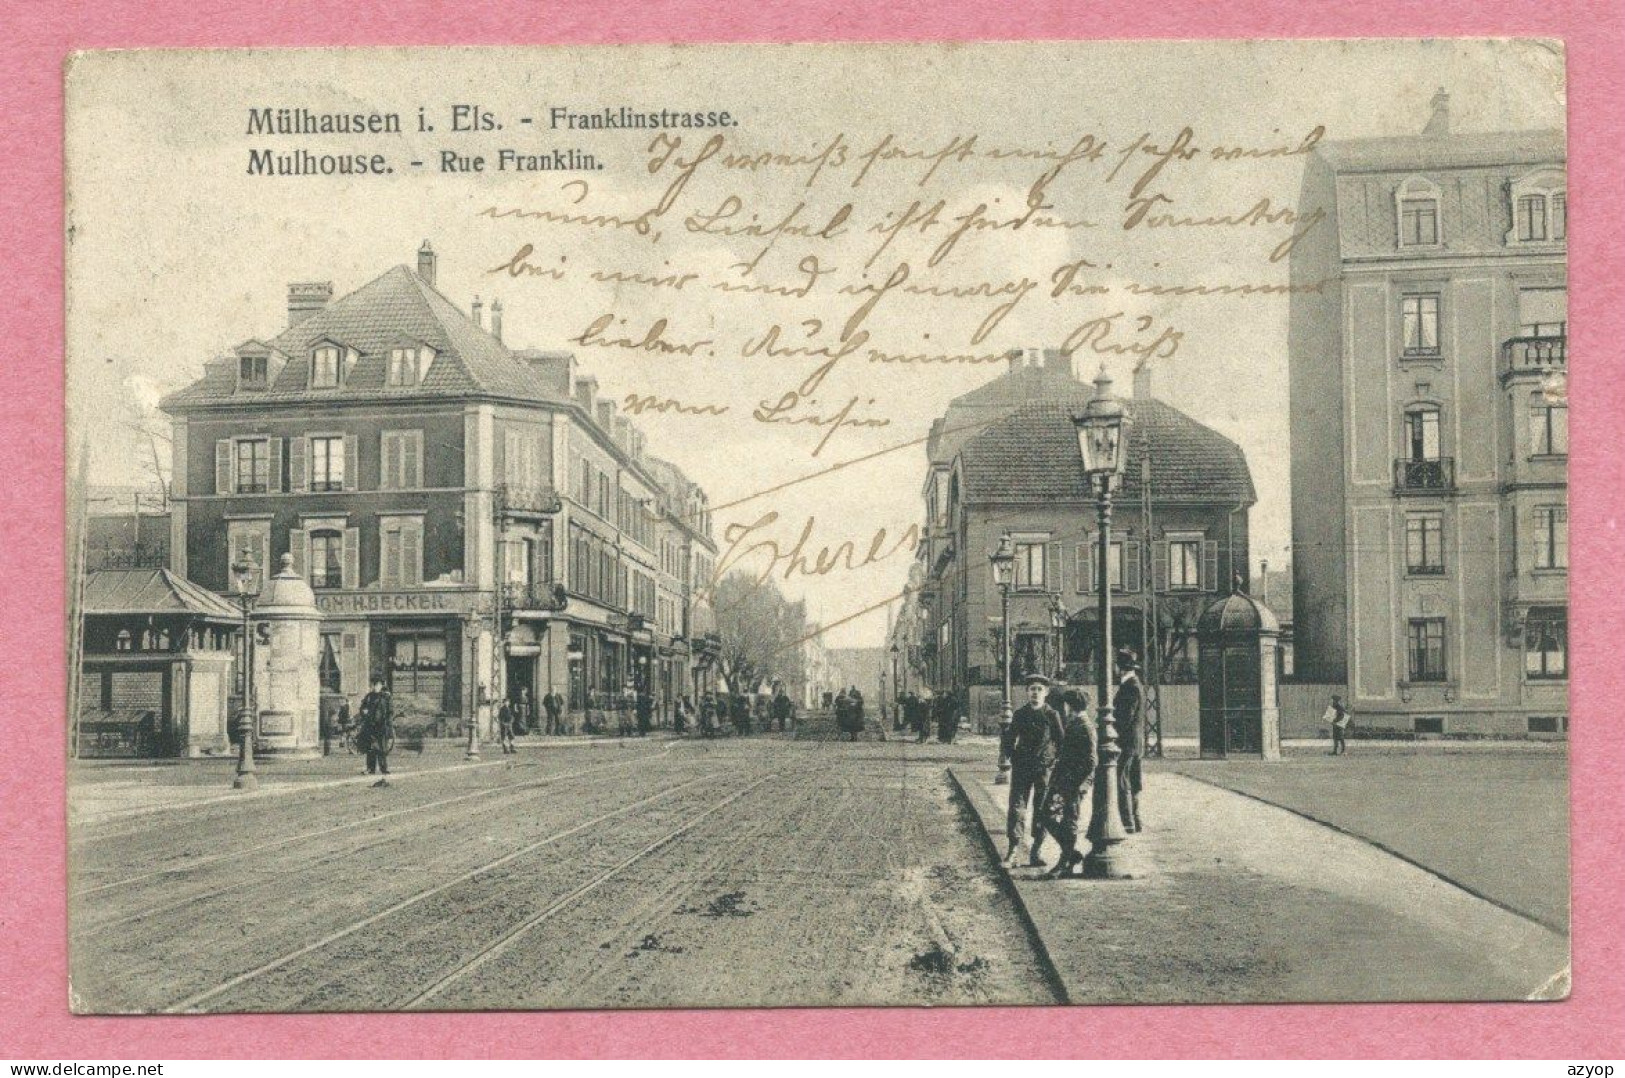 Mülhausen i. Els. - Franklinstrasse.
Mulhouse. - Rue Franklin.
Ich weiß sonst nicht sehr viel
neues, Liesel ist jeden Samstag
bei mir und ich mag Sie immer
lieber. Auch einen Kuß
von Liesie
H. BECKER
azyop